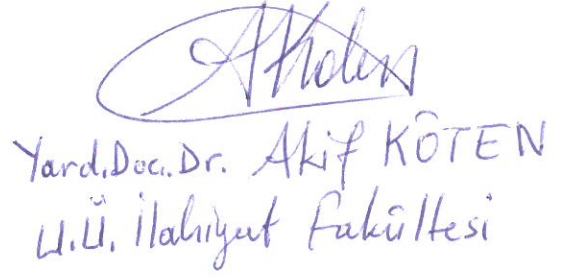 AKöten
Yard.Doc.Dr. Akif KÖTEN
U.Ü. İlahiyat Fakültesi